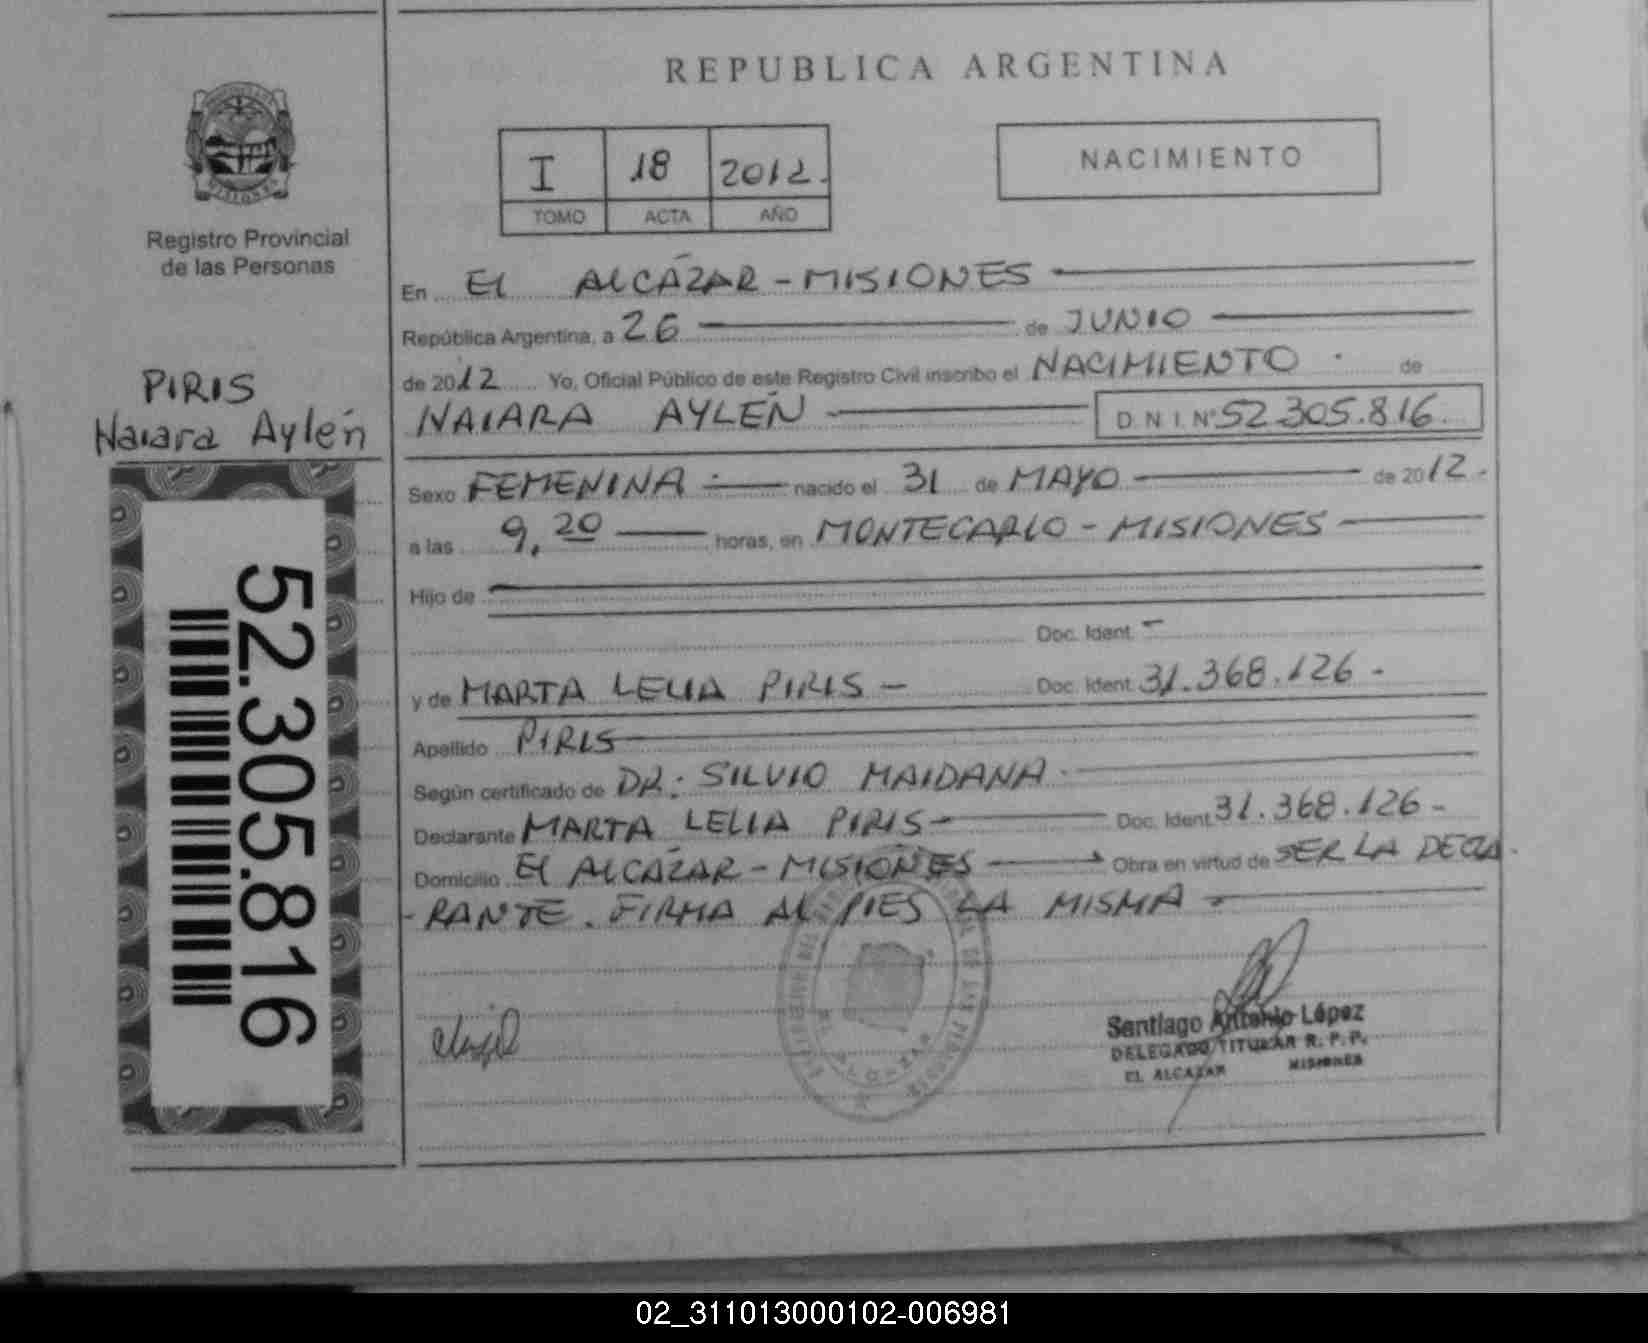 REPUBLICA ARGENTINA
I 18 2012.
TOMO ACTA AÑO
NACIMIENTO
MISIONES
Registro Provincial
de las Personas
PIRIS
Naiara Aylén
52.305.816
En El ALCÁZAR - MISIONES
República Argentina, a 26 de JUNIO
de 2012 Yo, Oficial Público de este Registro Civil inscribo el NACIMIENTO de
NAIARA AYLÉN D.N.I. Nº 52.305.816
Sexo FEMENINA nacido el 31 de MAYO de 2012.
a las 9,20 horas, en MONTECARLO - MISIONES
Hijo de
Doc. Ident. -
y de MARTA LELIA PIRIS - Doc. Ident. 31.368.126 -
Apellido PIRIS
Según certificado de DR: SILVIO MAIDANA
Declarante MARTA LELIA PIRIS - Doc. Ident. 31.368.126 -
Domicilio El ALCÁZAR - MISIONES Obra en virtud de SER LA DECLA-
-RANTE. FIRMA AL PIES LA MISMA
EL ALCAZAR
Santiago Antonio López
DELEGADO TITULAR R. P. P.
EL ALCAZAR MISIONES
02_311013000102-006981